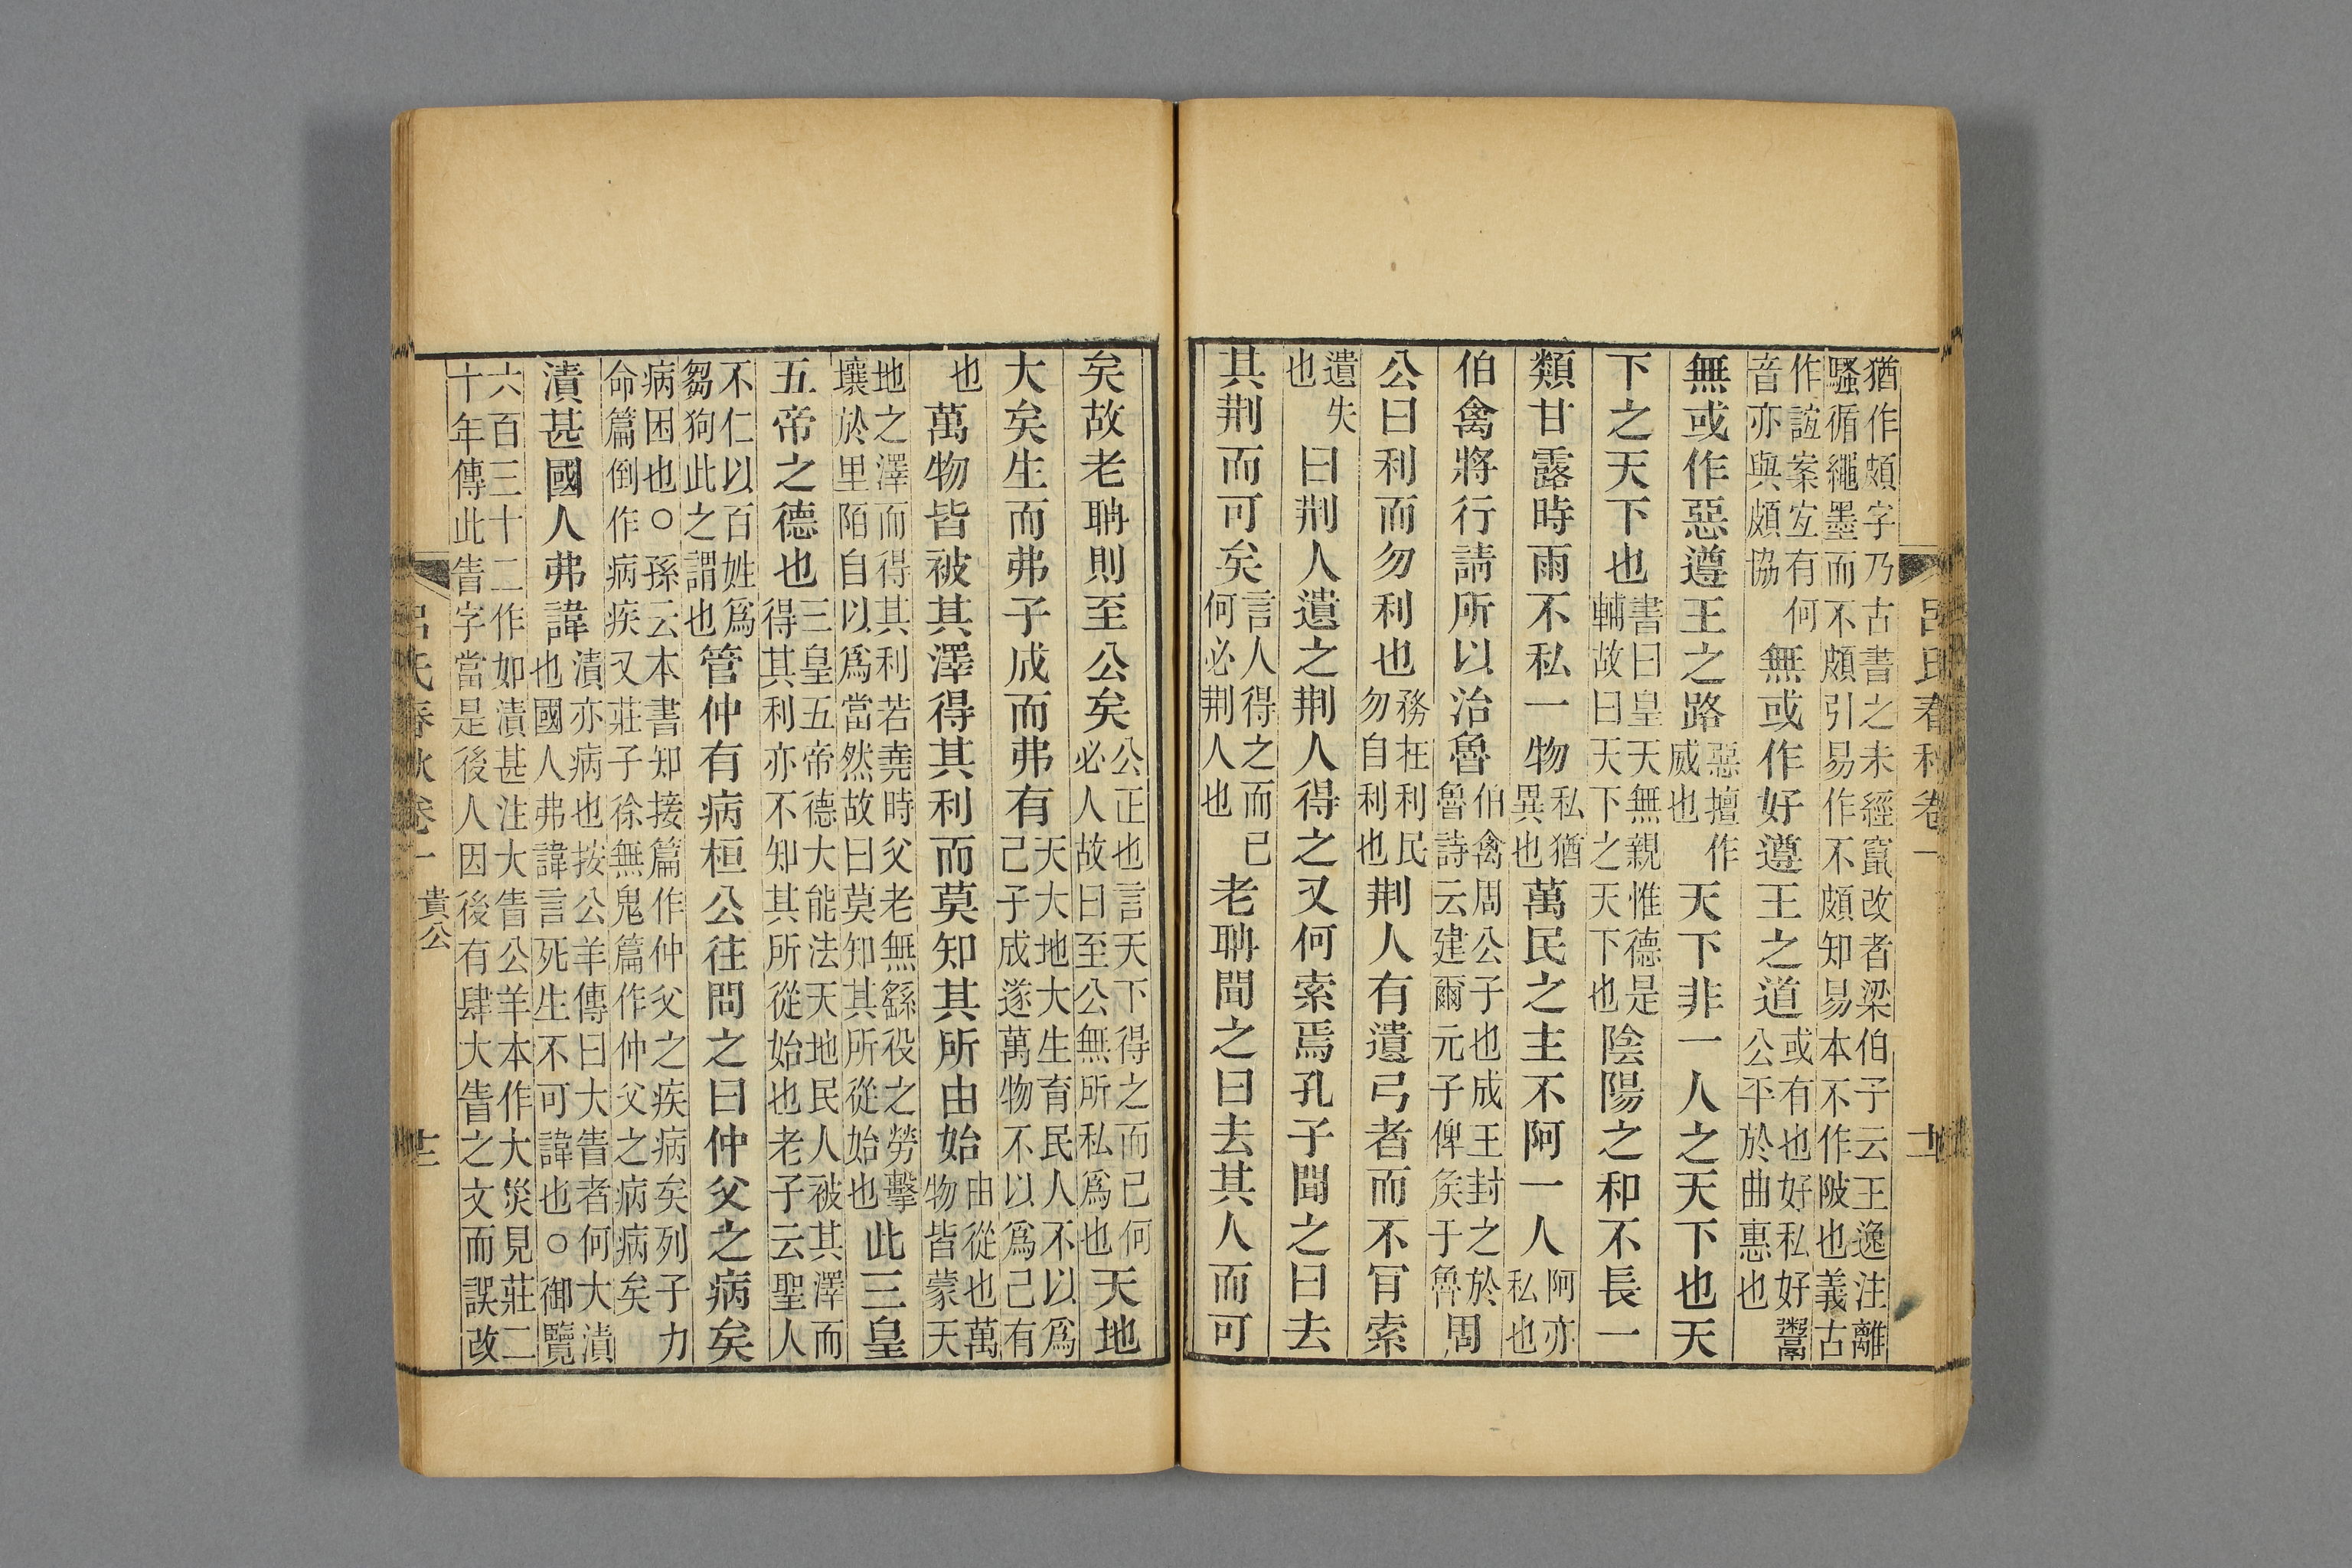 呂氏春秋卷一
猶作頗字乃古書之未經竄改者梁伯子云王逸注離
騷循繩墨而不頗引易作不頗知易本不作陂也義古
作誼案宐有何
音亦與頗協
無或作好遵王之道
或有也好私好鬻
公平於曲惠也
無或作惡遵王之路
惡擅作
威也
天下非一人之天下也天
下之天下也
書曰皇天無親惟德是
輔故曰天下之天下也
陰陽之和不長一
類甘露時雨不私一物
私猶
異也
萬民之主不阿一人
阿亦
私也
伯禽將行請所以治魯
伯禽周公子也成王封之於
魯詩云建爾元子俾矦于魯
周
公曰利而勿利也
務在利民
勿自利也
荆人有遺弓者而不肎索
遺失
也
曰荆人遺之荆人得之又何索焉孔子聞之曰去
其荆而可矣
言人得之而已
何必荆人也
老聃聞之曰去其人而可
矣故老聃則至公矣
公正也言天下得之而已何
必人故曰至公無所私爲也
天地
大矣生而弗子成而弗有
天大地大生育民人不以爲
己子成遂萬物不以爲己有
也
萬物皆被其澤得其利而莫知其所由始
由從也萬
物皆蒙天
地之澤而得其利若堯時父老無繇役之勞擊
壤於里陌自以爲當然故曰莫知其所從始也
此三皇
五帝之德也
三皇五帝德大能法天地民人被其澤而
得其利亦不知其所從始也老子云聖人
不仁以百姓爲
芻狗此之謂也
管仲有病桓公往問之曰仲父之病矣
病困也○孫云本書知接篇作仲父之疾病矣列子力
命篇倒作病疾又莊子徐無鬼篇作仲父之病病矣
漬甚國人弗諱
漬亦病也按公羊傳曰大眚者何大漬
也國人弗諱言死生不可諱也○御覽
六百三十二作如漬甚注大眚公羊本作大災見莊二
十年傳此眚字當是後人因後有肆大眚之文而誤改
呂氏春秋卷一
貴公
十三